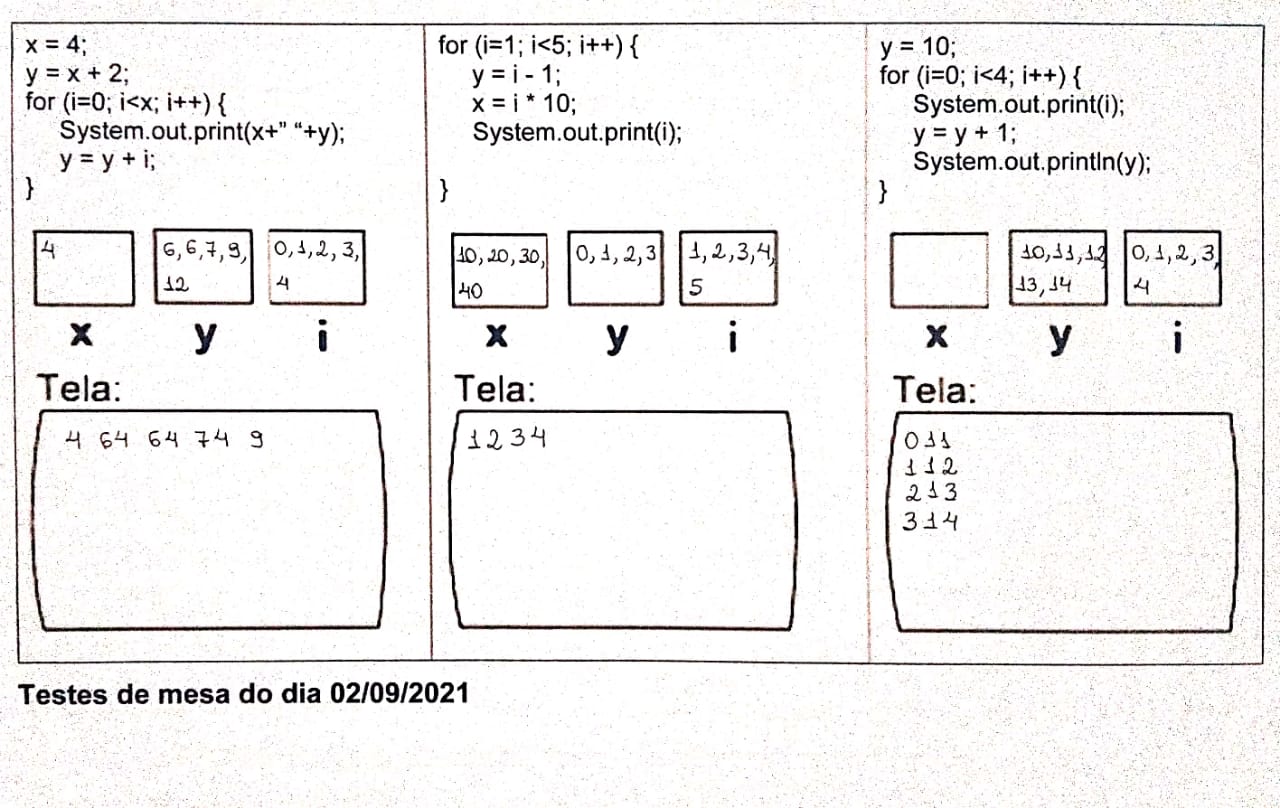 x = 4;
y = x + 2;
for (i=0; i<x; i++) {
System.out.print(x+” “+y);
y = y + i;
}
4
6,6,7,9,
12
0,1,2,3,
4
x y i
Tela:
4 64 64 74 9
for (i=1; i<5; i++) {
y = i - 1;
x = i * 10;
System.out.print(i);
}
10,20,30,
40
0,1,2,3
1,2,3,4,
5
x y i
Tela:
1234
y = 10;
for (i=0; i<4; i++) {
System.out.print(i);
y = y + 1;
System.out.println(y);
}
10,11,12
13,14
0,1,2,3,
4
x y i
Tela:
011
112
213
314
Testes de mesa do dia 02/09/2021